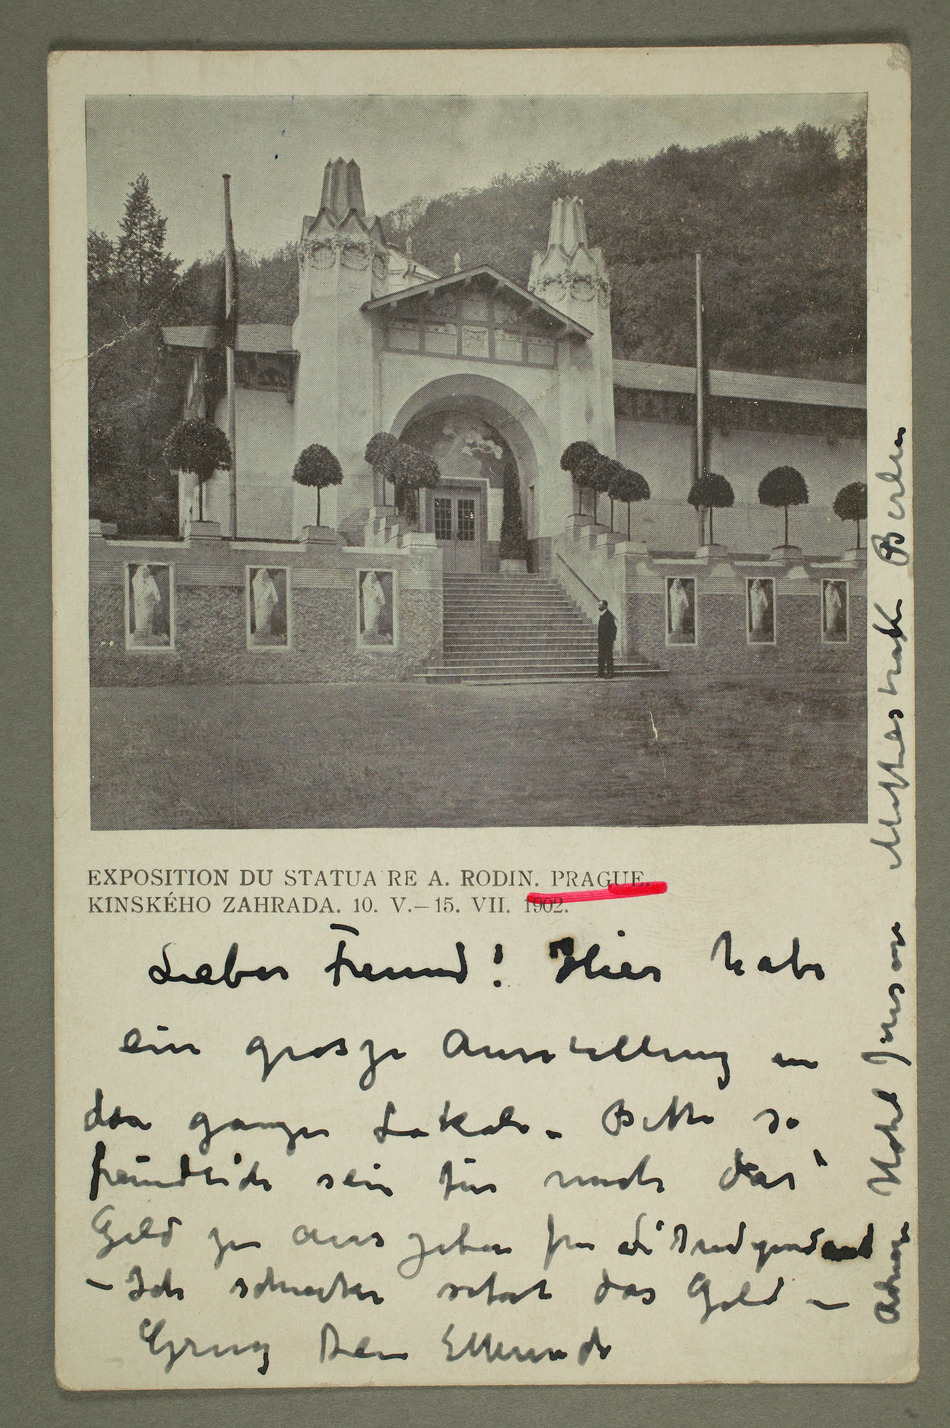 EXPOSITION DU STATUAIRE A. RODIN. PRAGUE.
KINSKÉHO ZAHRADA. 10. V.–15. VII. 1902.
Lieber Freund! Hier habe
ein grosze Ausstellung in
das ganze Lokale. Bitte so
freundlich sein für mich das
Geld zu aus geben für
– Ich schicke sofort das Geld –
Grusz Dein
Hotel Berlin